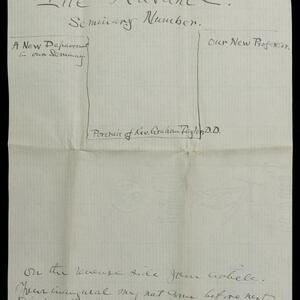 The Advance.
Seminary Number.
A New Department
in our Seminary
Our New Professor.
Portrait of Rev. Graham Taylor D.D.
On the reverse side your article.
Your inaugural may not come before next